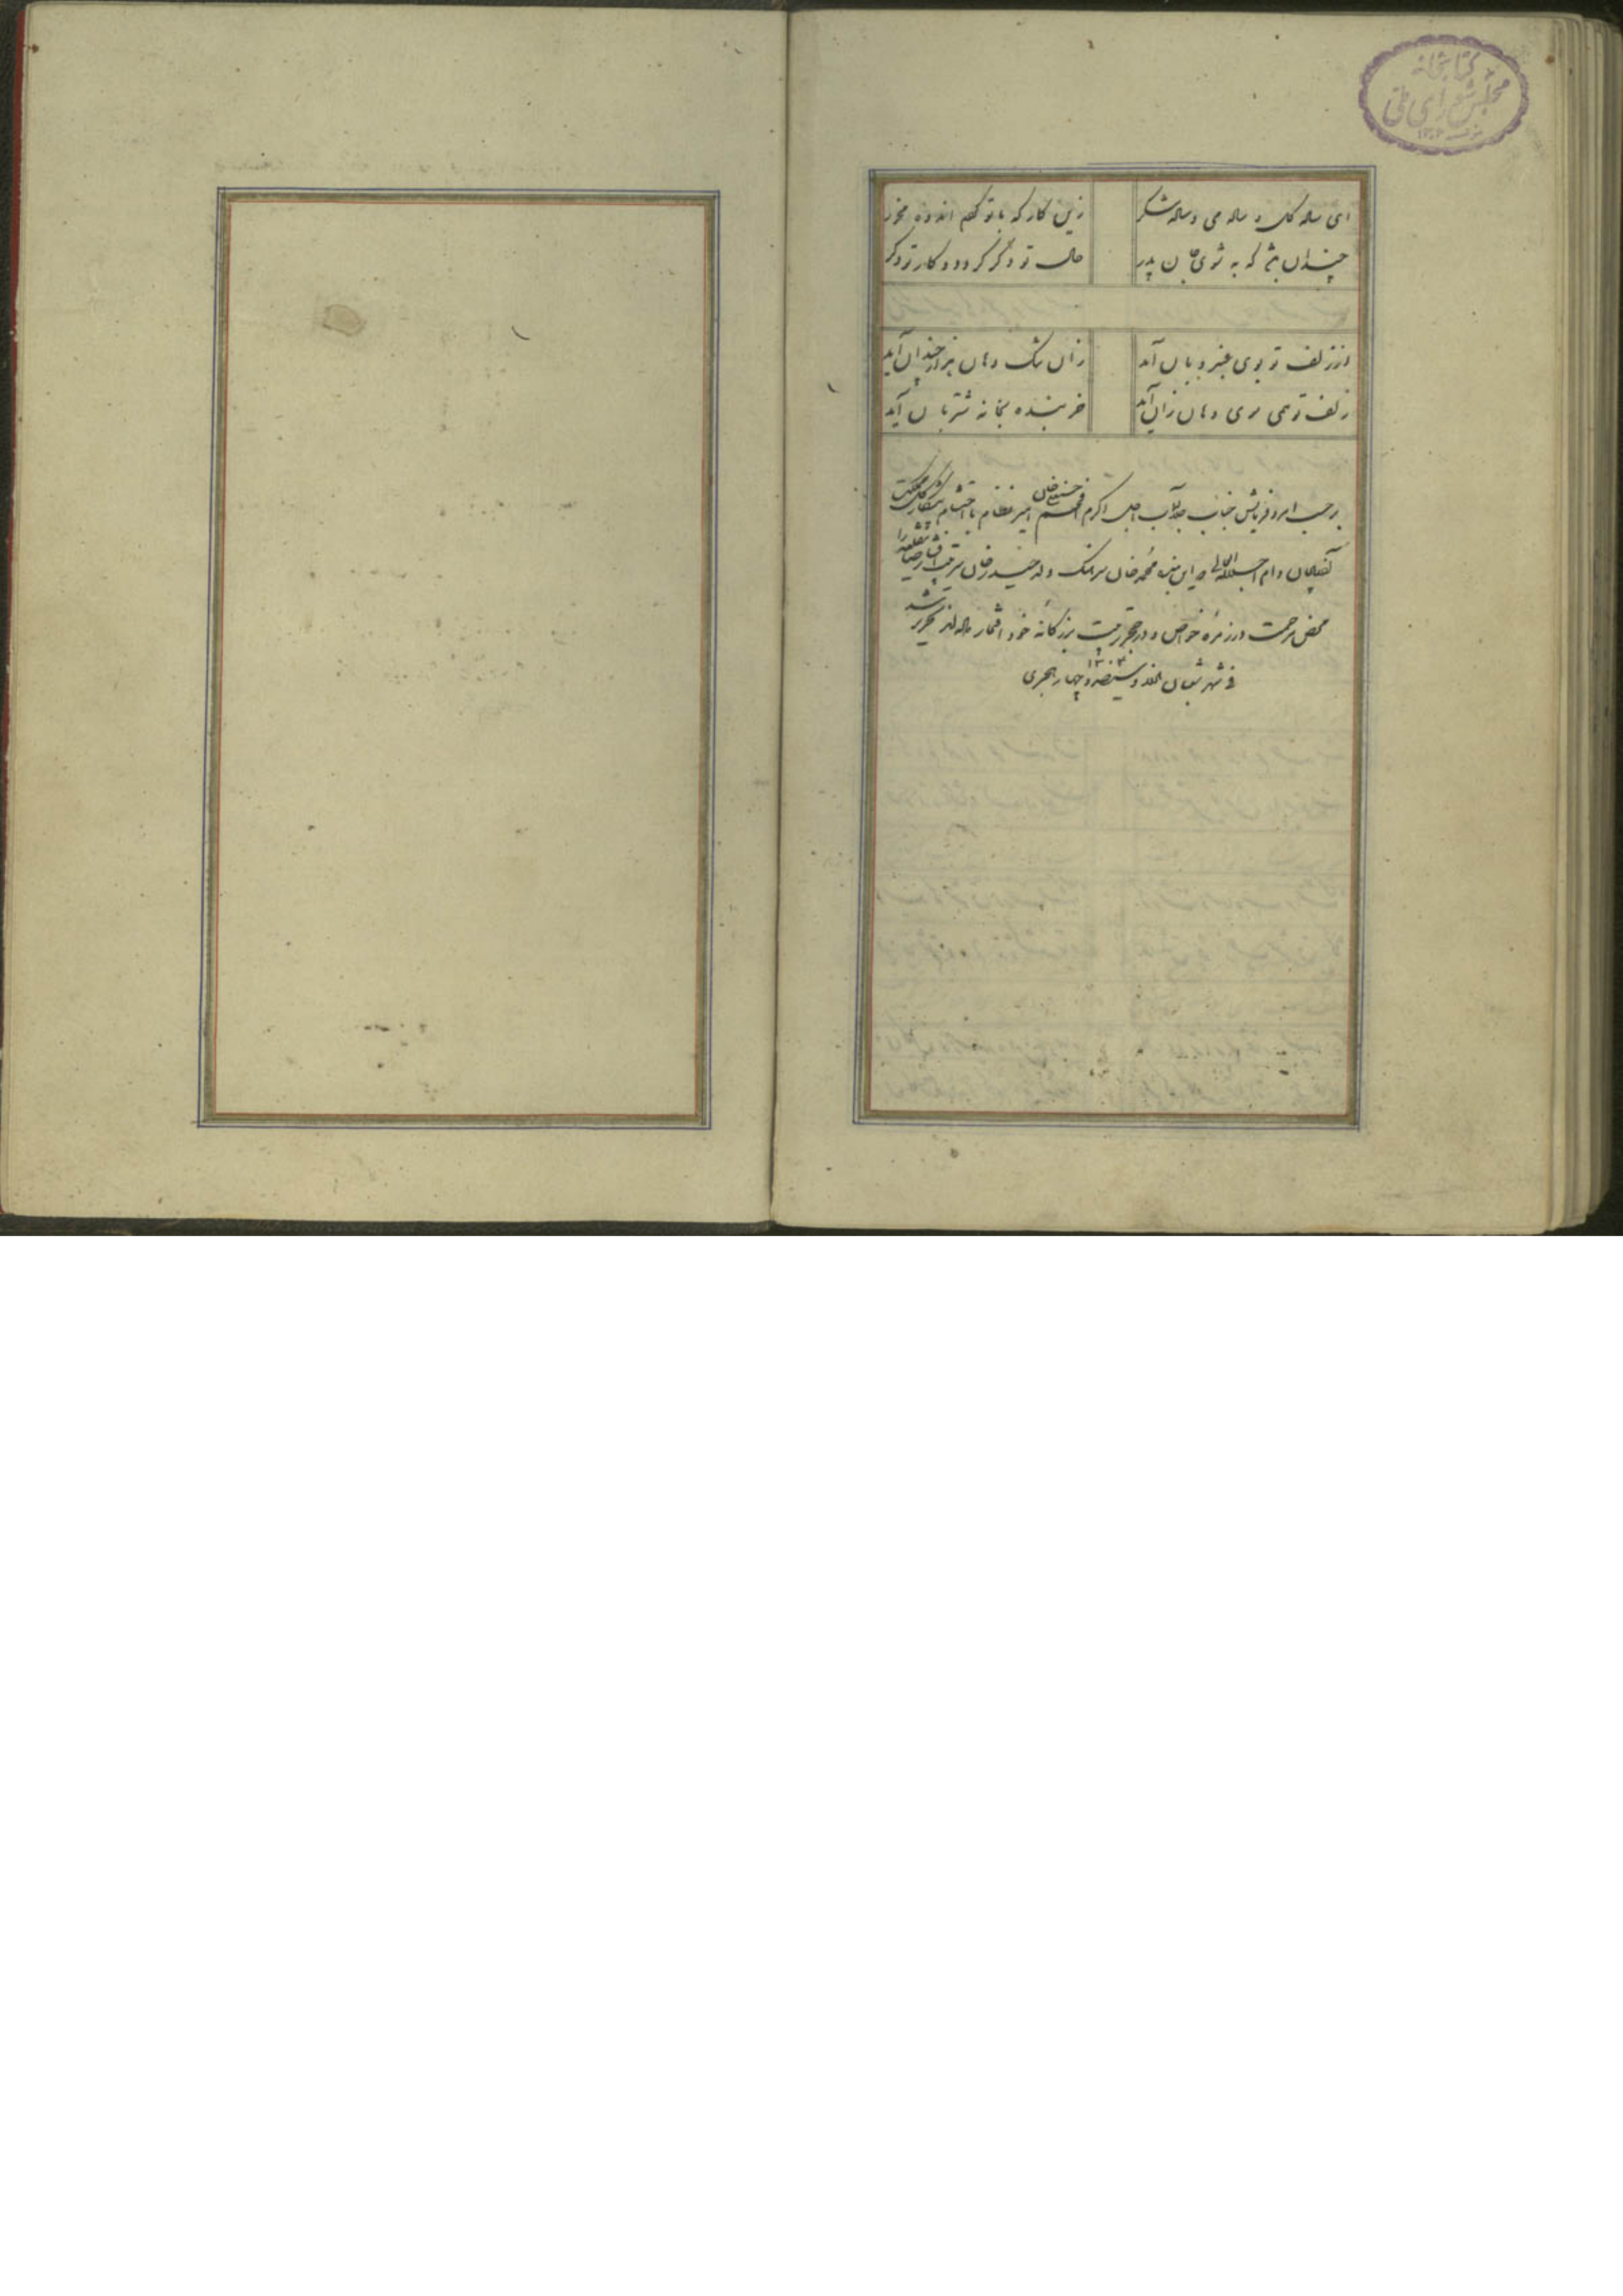 کتابخانه
مجلس شورای ملی
ای ساده گل و ساده می و ساده شکر زین کار که با تو کردم اندوه مخور
چندان بشو که به شوی جان پدر حال تو دگر گردد و کار تو دگر
از زلف تو بوی عنبر و بان آید زان تنگ دهان هزار چندان آید
زلف تو همی سوی دهان زان آید خربنده بخانه شتربان آید
بر حسب امر و فرمایش جناب جلالتمآب اجل اکرم افخم حسنعلی خان امیر نظام با احتشام پیشکار کل مملکت
آذربایجان دام اجلاله العالی این بنده محمد خان سرهنگ ولد خان سرتیپ را
محض مرحمت در زمره خواص و در حجر تربیت بزرگانه خود افتخار داده‌اند تحریر شد
فی شهر شعبان هزار و سیصد و چهار هجری ۱۳۰۴